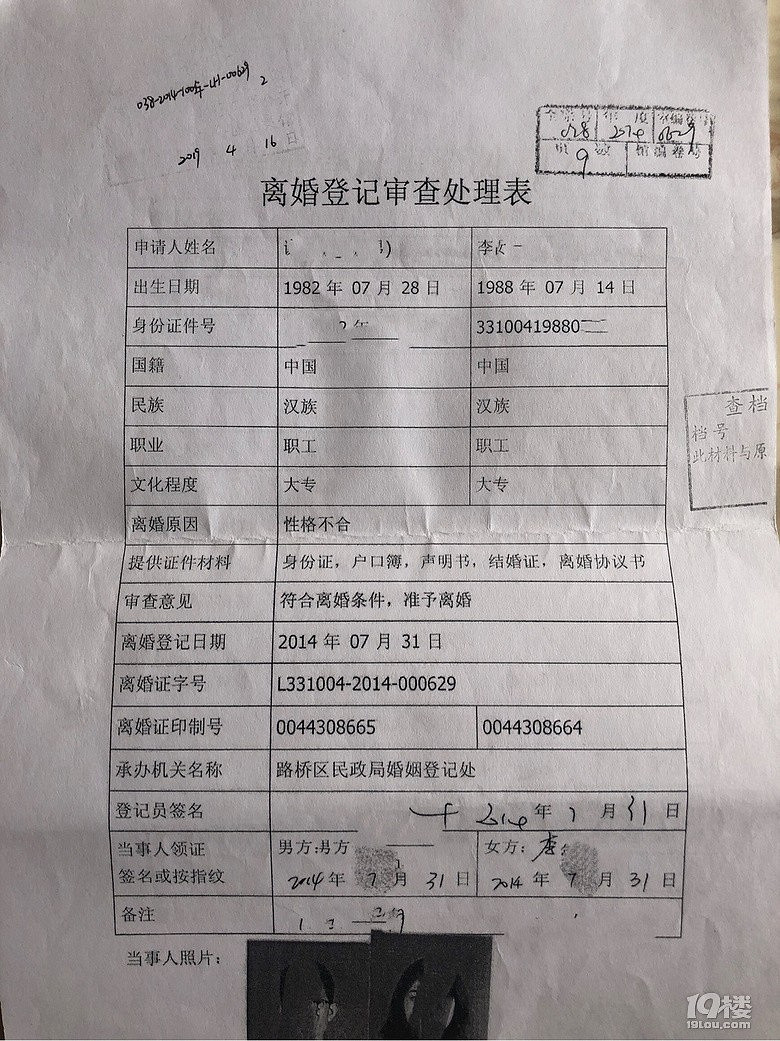 038-2014-1005-LH-00629 2
2019 4 16
全宗号 年度 案卷号
038 2014 0629
9
离婚登记审查处理表
申请人姓名 李
出生日期 1982 年 07 月 28 日 1988 年 07 月 14 日
身份证件号 33100419880
国籍 中国 中国
民族 汉族 汉族
查档
职业 职工 职工
档号
此材料与原
文化程度 大专 大专
离婚原因 性格不合
提供证件材料 身份证，户口簿，声明书，结婚证，离婚协议书
审查意见 符合离婚条件，准予离婚
离婚登记日期 2014 年 07 月 31 日
离婚证字号 L331004-2014-000629
离婚证印制号 0044308665 0044308664
承办机关名称 路桥区民政局婚姻登记处
登记员签名 2014 年 7 月 31 日
当事人领证 男方:男方 女方: 李
签名或按指纹 2014 年 7 月 31 日 2014 年 7 月 31 日
备注
当事人照片:
19楼
19lou.com